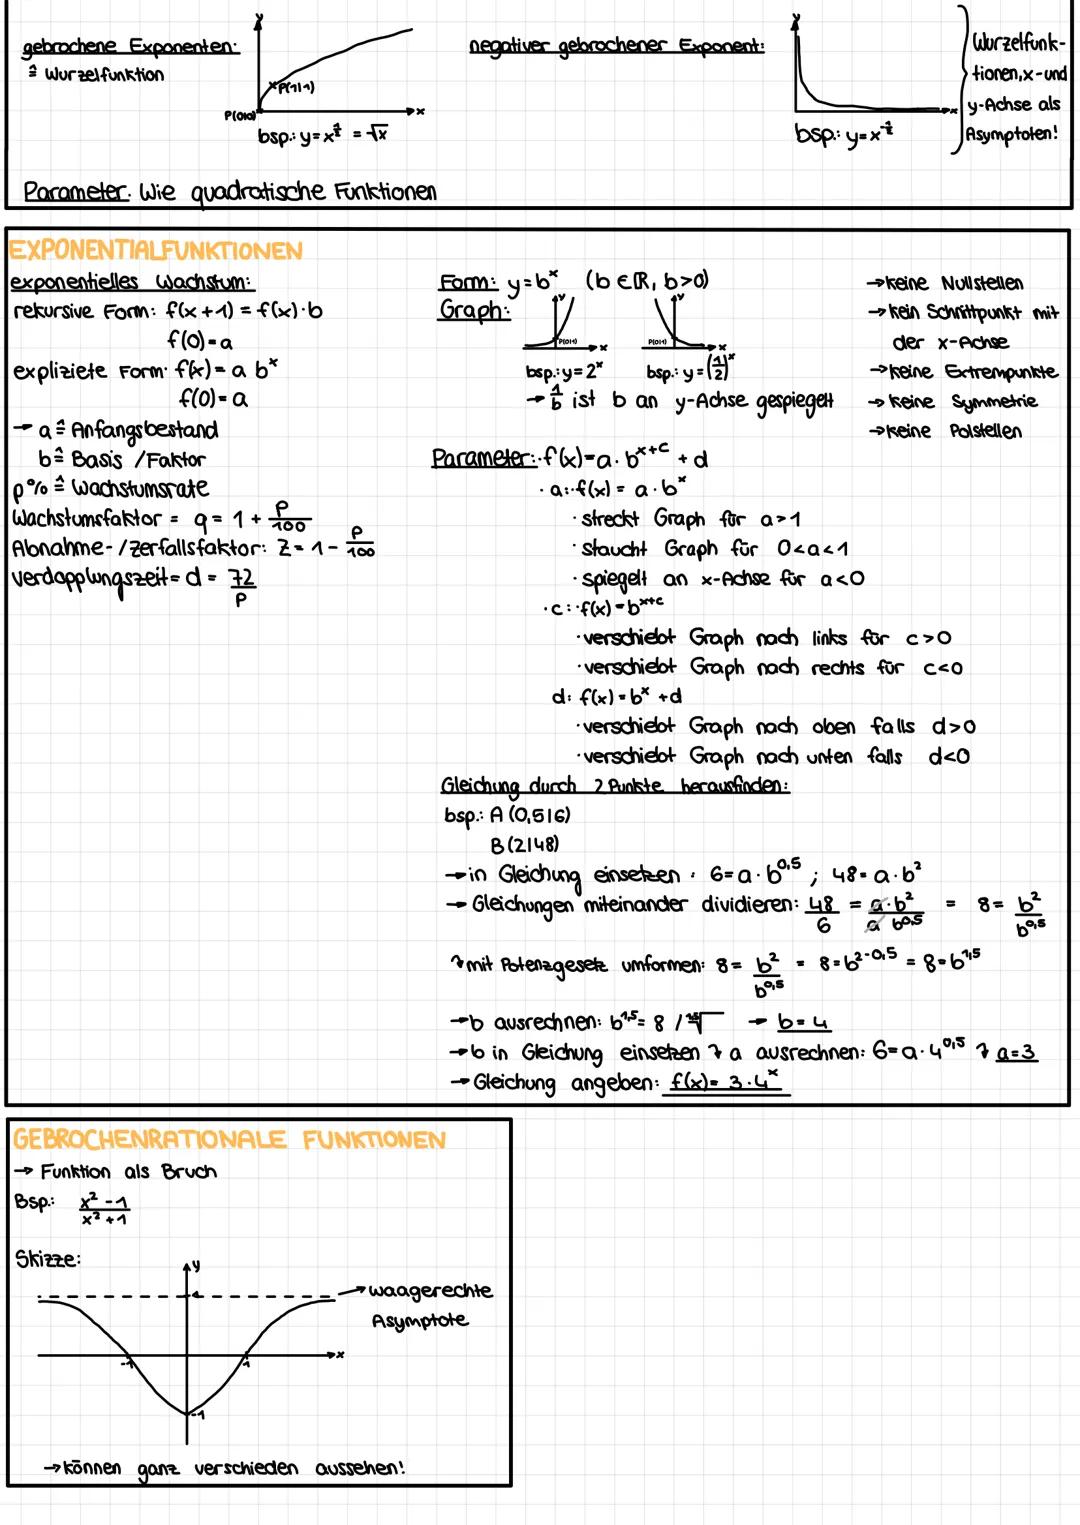 gebrochene Exponenten:
≙ Wurzelfunktion
y
P(1|1)
P(0|0)
x
bsp.: y=x^½ = √x
negativer gebrochener Exponent:
y
x
bsp.: y=x^-½
Wurzelfunk-
tionen, x-und
y-Achse als
Asymptoten!
Parameter: Wie quadratische Funktionen
EXPONENTIALFUNKTIONEN
exponentielles Wachstum:
rekursive Form: f(x+1) = f(x)·b
f(0)=a
expliziete Form: f(x)= a b^x
f(0)=a
→ a ≙ Anfangsbestand
b ≙ Basis /Faktor
p% ≙ Wachstumsrate
Wachstumsfaktor = q = 1 + p/100
Abnahme-/Zerfallsfaktor: Z = 1 - p/100
Verdopplungszeit = d = 72/p
Form: y=b^x (b ∈ ℝ, b>0)
Graph:
y
P(0|1)
x
y
P(0|1)
x
bsp.: y=2^x bsp.: y=(1/2)^x
→ 1/b ist b an y-Achse gespiegelt
→keine Nullstellen
→kein Schnittpunkt mit
der x-Achse
→keine Extrempunkte
→ keine Symmetrie
→keine Polstellen
Parameter: ·f(x)=a·b^x+c + d
· a: ·f(x) = a·b^x
· streckt Graph für a>1
· staucht Graph für 0<a<1
· spiegelt an x-Achse für a<0
· c: ·f(x)=b^x+c
· verschiebt Graph nach links für c>0
· verschiebt Graph nach rechts für c<0
d: f(x)=b^x +d
· verschiebt Graph nach oben falls d>0
· verschiebt Graph nach unten falls d<0
Gleichung durch 2 Punkte herausfinden:
bsp.: A (0,5|6)
B(2|48)
→in Gleichung einsetzen: 6=a·b^0,5 ; 48=a·b²
→ Gleichungen miteinander dividieren: 48/6 = a·b²/a b^0,5 = 8= b²/b^0,5
↴mit Potenzgesetz umformen: 8= b²/b^0,5 = 8=b^2-0,5 = 8=b^1,5
→b ausrechnen: b^1,5= 8 / ^1,5√ → b=4
→b in Gleichung einsetzen ↴ a ausrechnen: 6=a·4^0,5 ↴ a=3
→ Gleichung angeben: f(x)= 3·4^x
GEBROCHENRATIONALE FUNKTIONEN
→ Funktion als Bruch
Bsp.: x²-1/x²+1
Skizze:
y
1
→waagerechte
Asymptote
-1
1
x
-1
→können ganz verschieden aussehen!